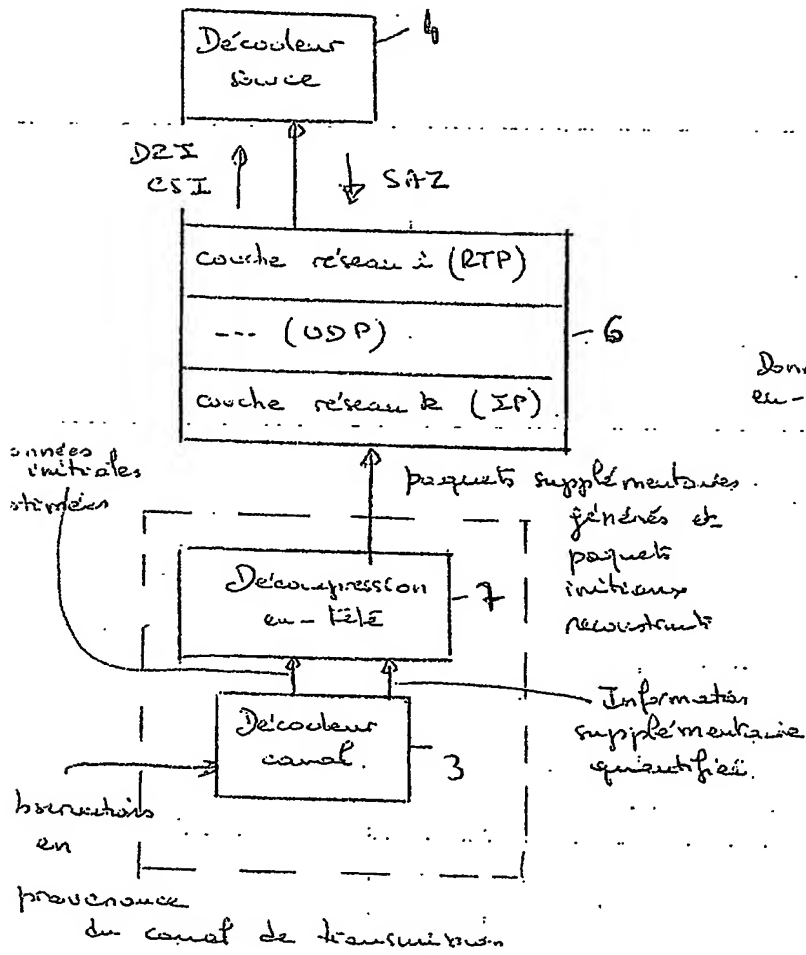 Décodeur
source
4
DRI
CSI
SAI
couche réseau i (RTP)
--- (UDP)
6
couche réseau k (IP)
Donn
en-
onnées
initiales
stimées
paquets supplémentaires
générés et
paquets
initiaux
reconstruits
Décompression
en-tête
7
Décodeur
canal.
3
Information
supplémentaire
quantifiée.
bservations
en
provenance
du canal de transmission